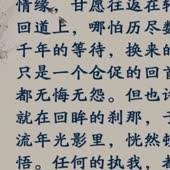 情缘，甘愿往返在轮
回道上，哪怕历尽数
千年的等待，换来的
只是一个仓促的回首
都无悔无怨。但也许
就在回眸的刹那，于
流年光影里，恍然顿
悟。任何的执我，都